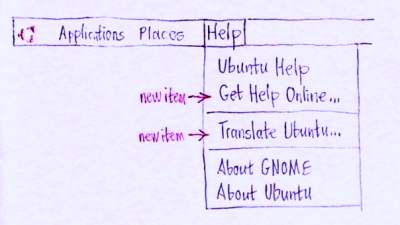 Applications Places Help
Ubuntu Help
new item Get Help Online...
new item Translate Ubuntu...
About GNOME
About Ubuntu